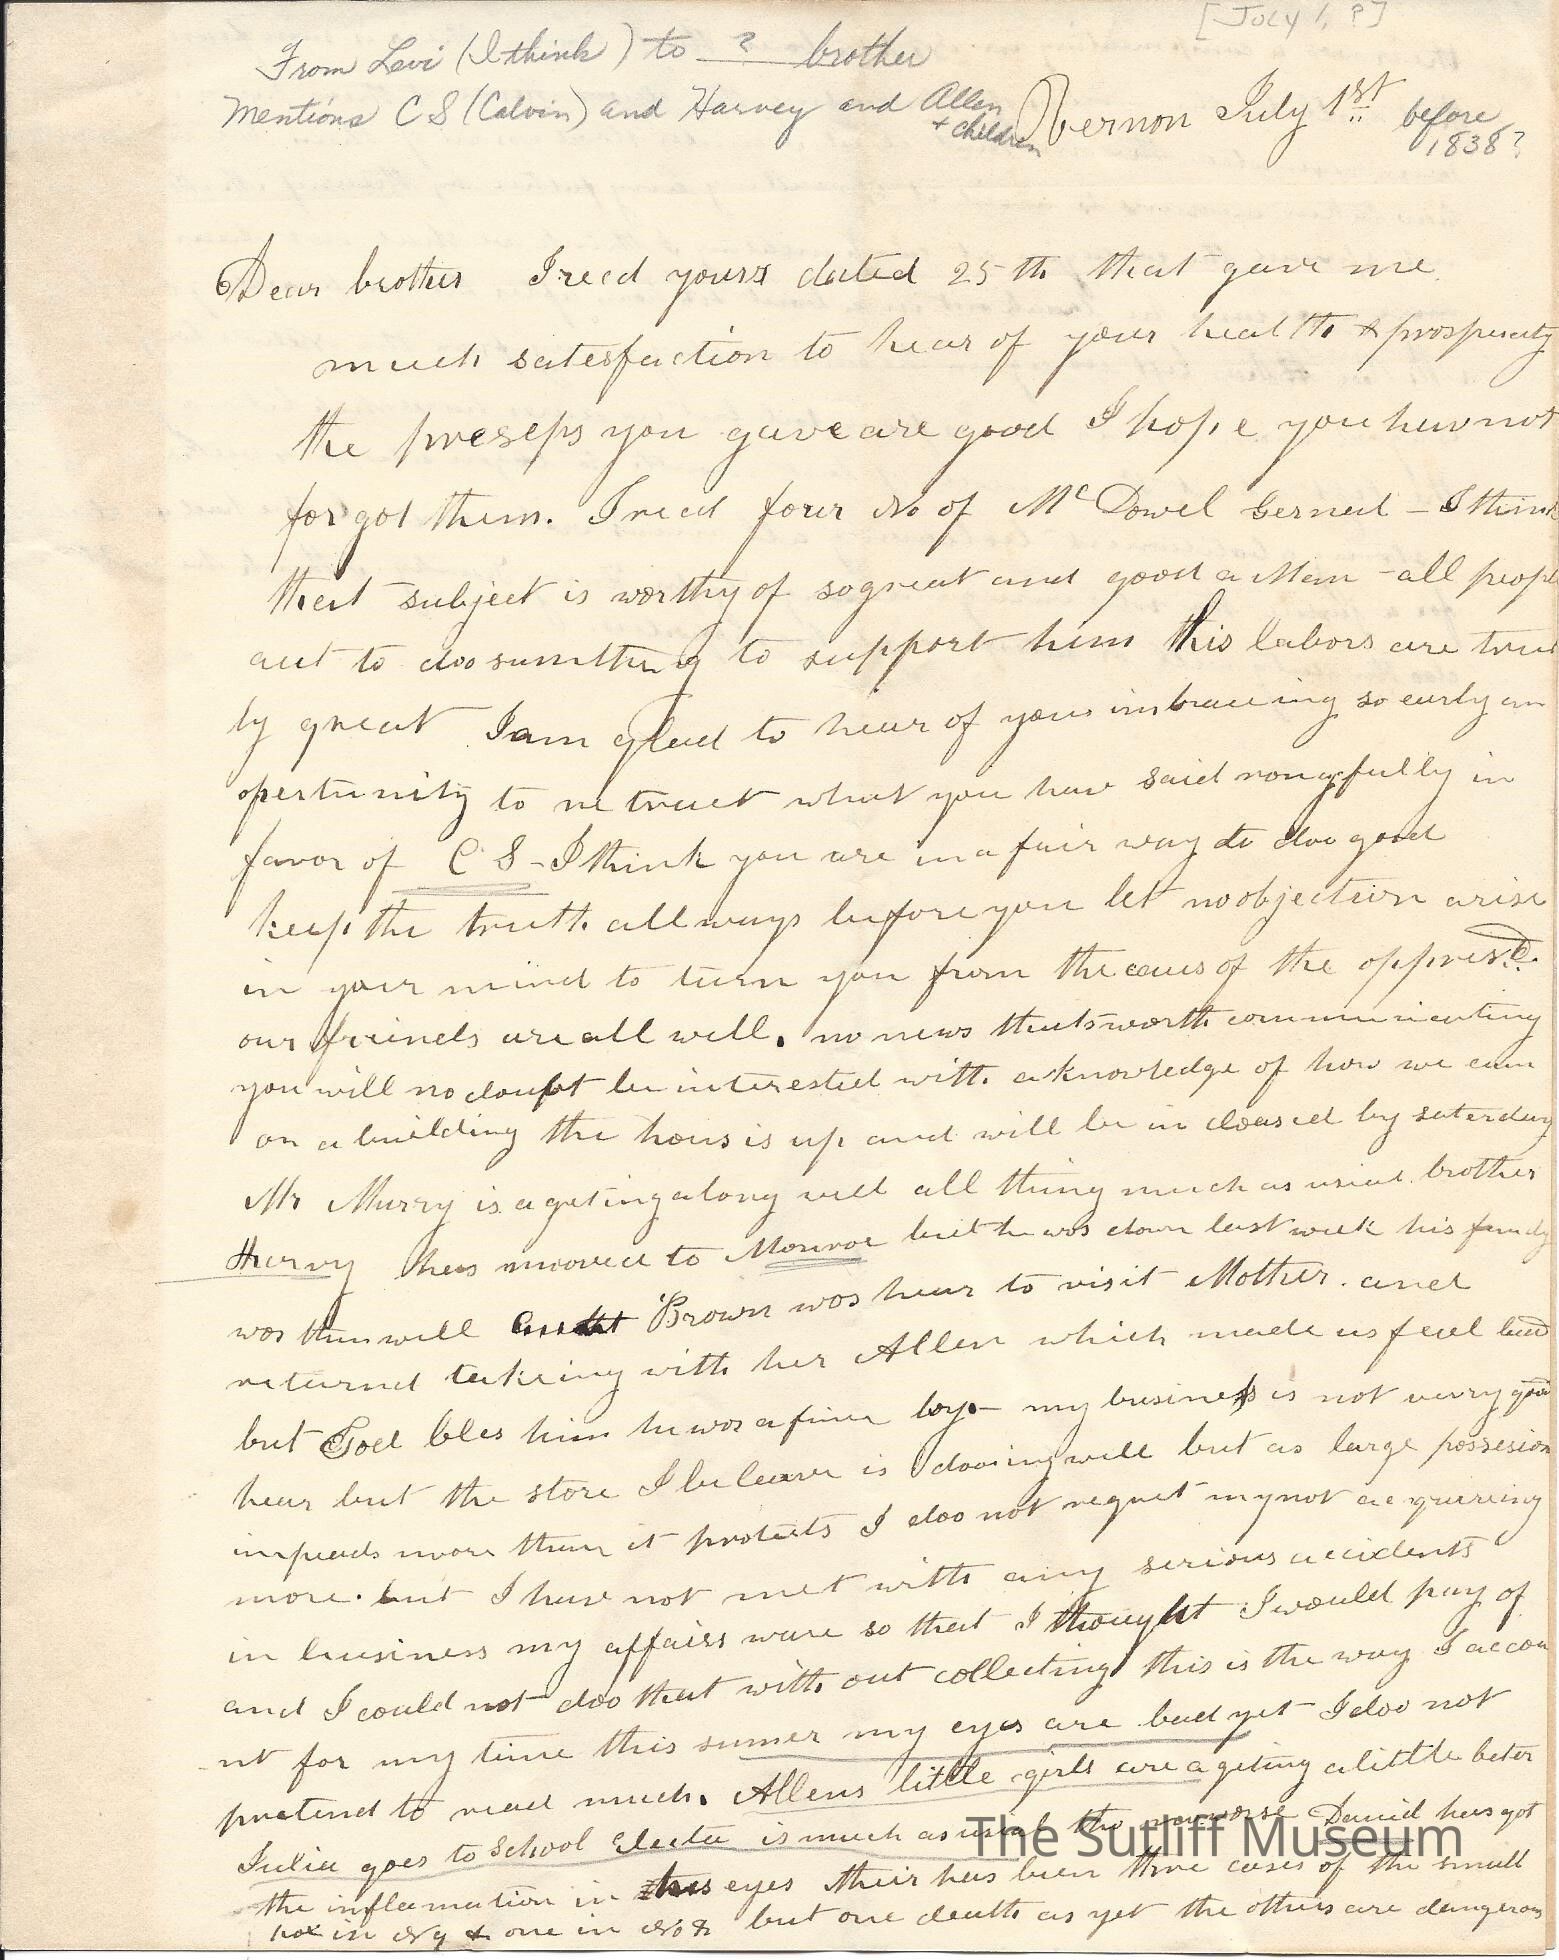 [July 1, ?]
From Levi (I think) to ? brother
Mentions C S (Calvin) and Harvey and Allen
+ children
Vernon July 1st before
1838?
Dear brother I recd yours dated 25th that gave me
much satesfaction to hear of your health & prosperity
the preseps you gave are good I hope you have not
forgot them. I recd four No of Mc Dowel Gernal - I think
that subject is worthy of so great and good a Man - all people
aut to doo sumthing to support him his labors are true
ly great I am glad to hear of your imbraceing so early an
opertunity to retract what you have said rongfully in
favor of C S - I think you are in a fair way to doo good
keep the truth allways before you let no objection arise
in your mind to turn you from the caus of the oppresd.
our friends are all well. no news thats worth communicating
you will no doubt be interested with a knowledge of how we cum
on a building the hous is up and will be in closed by saterday
Mr Murry is a geting along well all thing much as usual. brother
Harvy has mooved to Monroe but he was down last week his family
was then well Brown was hear to visit Mother. and
returnd takeing with her Allen which made us feel bad
but God bles him he was a fine boy - my business is not verry good
hear but the store I beleave is dooing well but as large possesion
impeads more than it protects I doo not regret my not acquireing
more. but I have not met with any serious accidents
in business my affairs ware so that I thought I would pay of
and I could not doo that with out collecting this is the way I accou
nt for my time this sumer my eyes are bad yet I doo not
pretend to read much. Allens little girls are a geting a little beter
Julia goes to School Electa is much as usial tho no worse David has got
the inflamation in his eyes their has been three cases of the small
pox in Ny & one in No 8 but one death as yet the others are dangerous
The Sutliff Museum